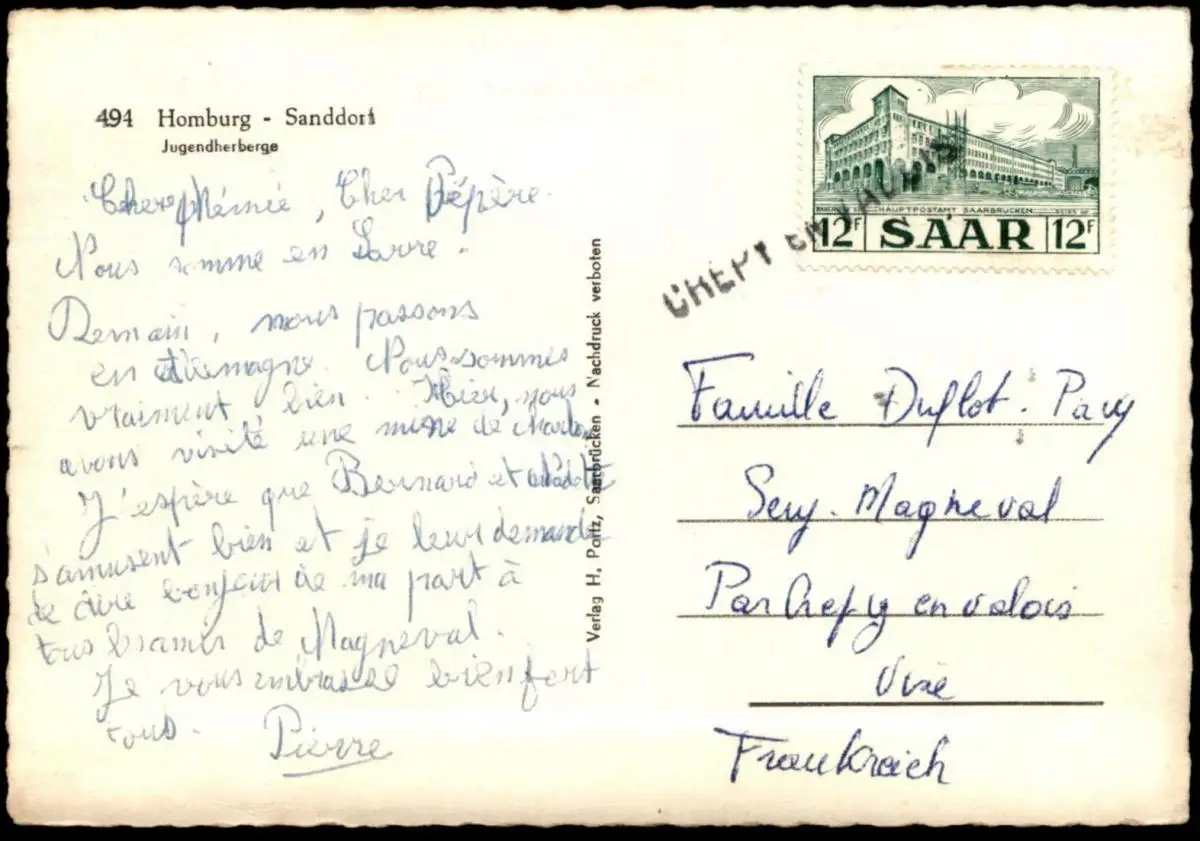 494 Homburg - Sanddorf
Jugendherberge
Chère Mémée, Cher Pépère.
Nous somme en Sarre.
Demain, nous passons
en Allemagne. Nous sommes
vraiment bien. Hier, nous
avons visité une mine de charbon
J'espère que Bernard et
s'amusent bien et je leur demande
de dire bonjour de ma part à
tous les amis de Magneval.
Je vous embrasse bien fort
tous.
Pierre
Verlag H. Portz, Saarbrücken - Nachdruck verboten
HAUPTPOSTAMT SAARBRÜCKEN
12F SAAR 12F
CREPY EN VALOIS
Famille Duflot. Pavy
Sery-Magneval
Par Crepy en valois
Oise
Frankreich